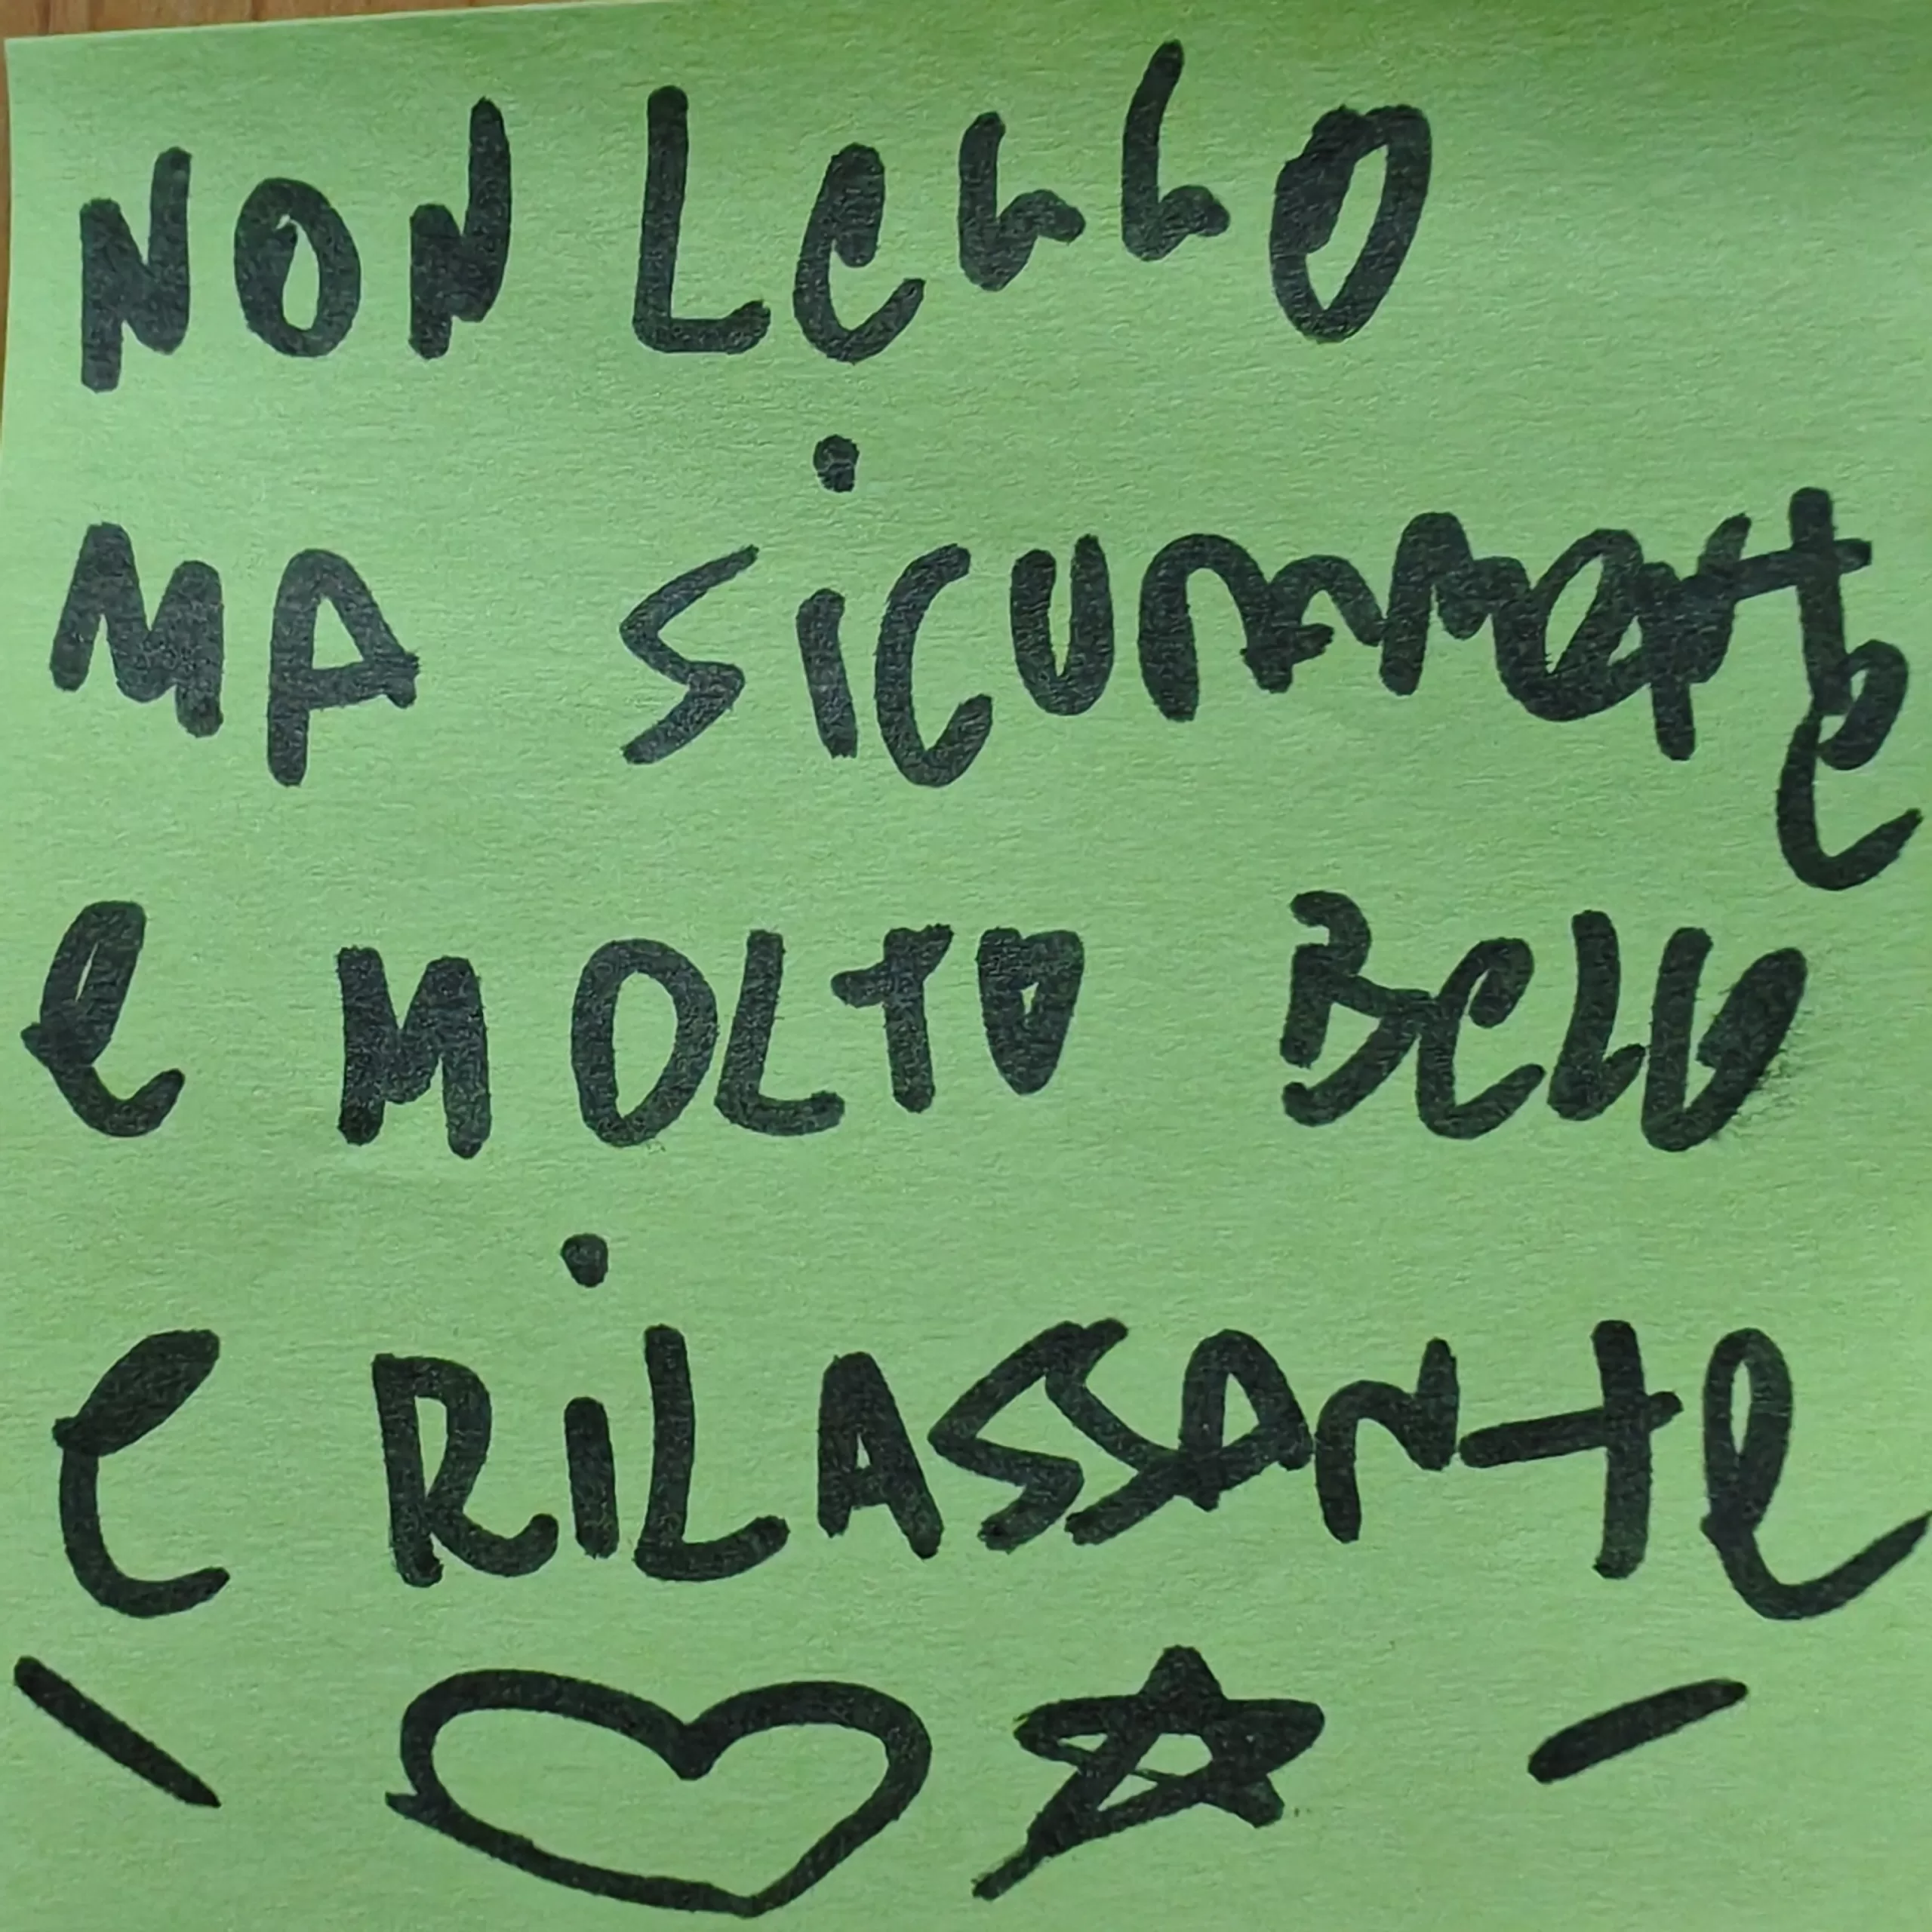 NON LeGGO
MA SiCURAMente
e MOLTO BeLLO
e RiLASSANte